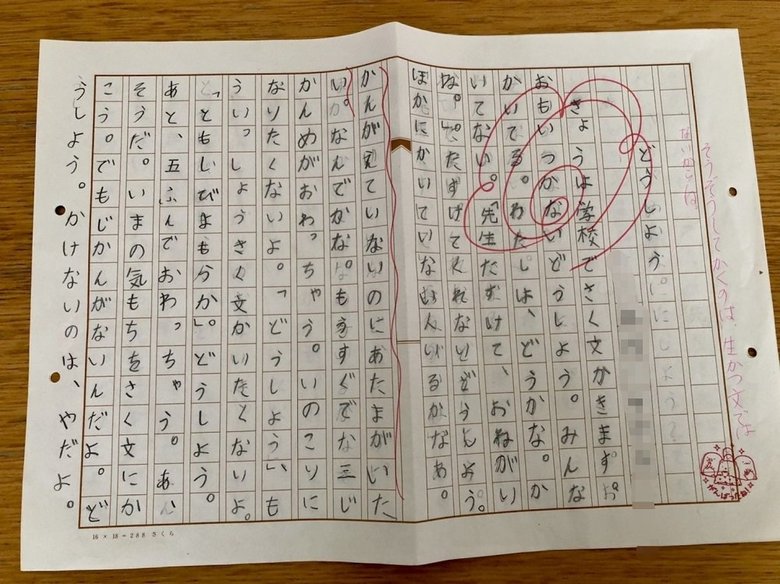 そうぞうしてかくのは、生かつ文では
どうしよう
きょうは学校でさく文がきます。
おもいつかないどうしよう。みんな
かいてる。わたしは、どうかな。か
いてない。「先生たすけて、おねがい
ね。」たすけてくれないどうしよう。
ほかにかいていない人いるかなあ。
かんがえていないのにあたまがいた
い。なんでかな。もうすぐでな三じ
かんめがおわっちゃう。いのこりに
なりたくないよ。「どうしよう」も
ういっしょうさく文かいたくないよ。
「ともしびよもうか」。どうしよう。
あと、五ふんでおわっちゃう。あ、
そうだ。いまの気もちをさく文にか
こう。でもじかんがないんだよ。ど
うしよう。かけないのは、やだよ。
16 × 18 = 288 さくら